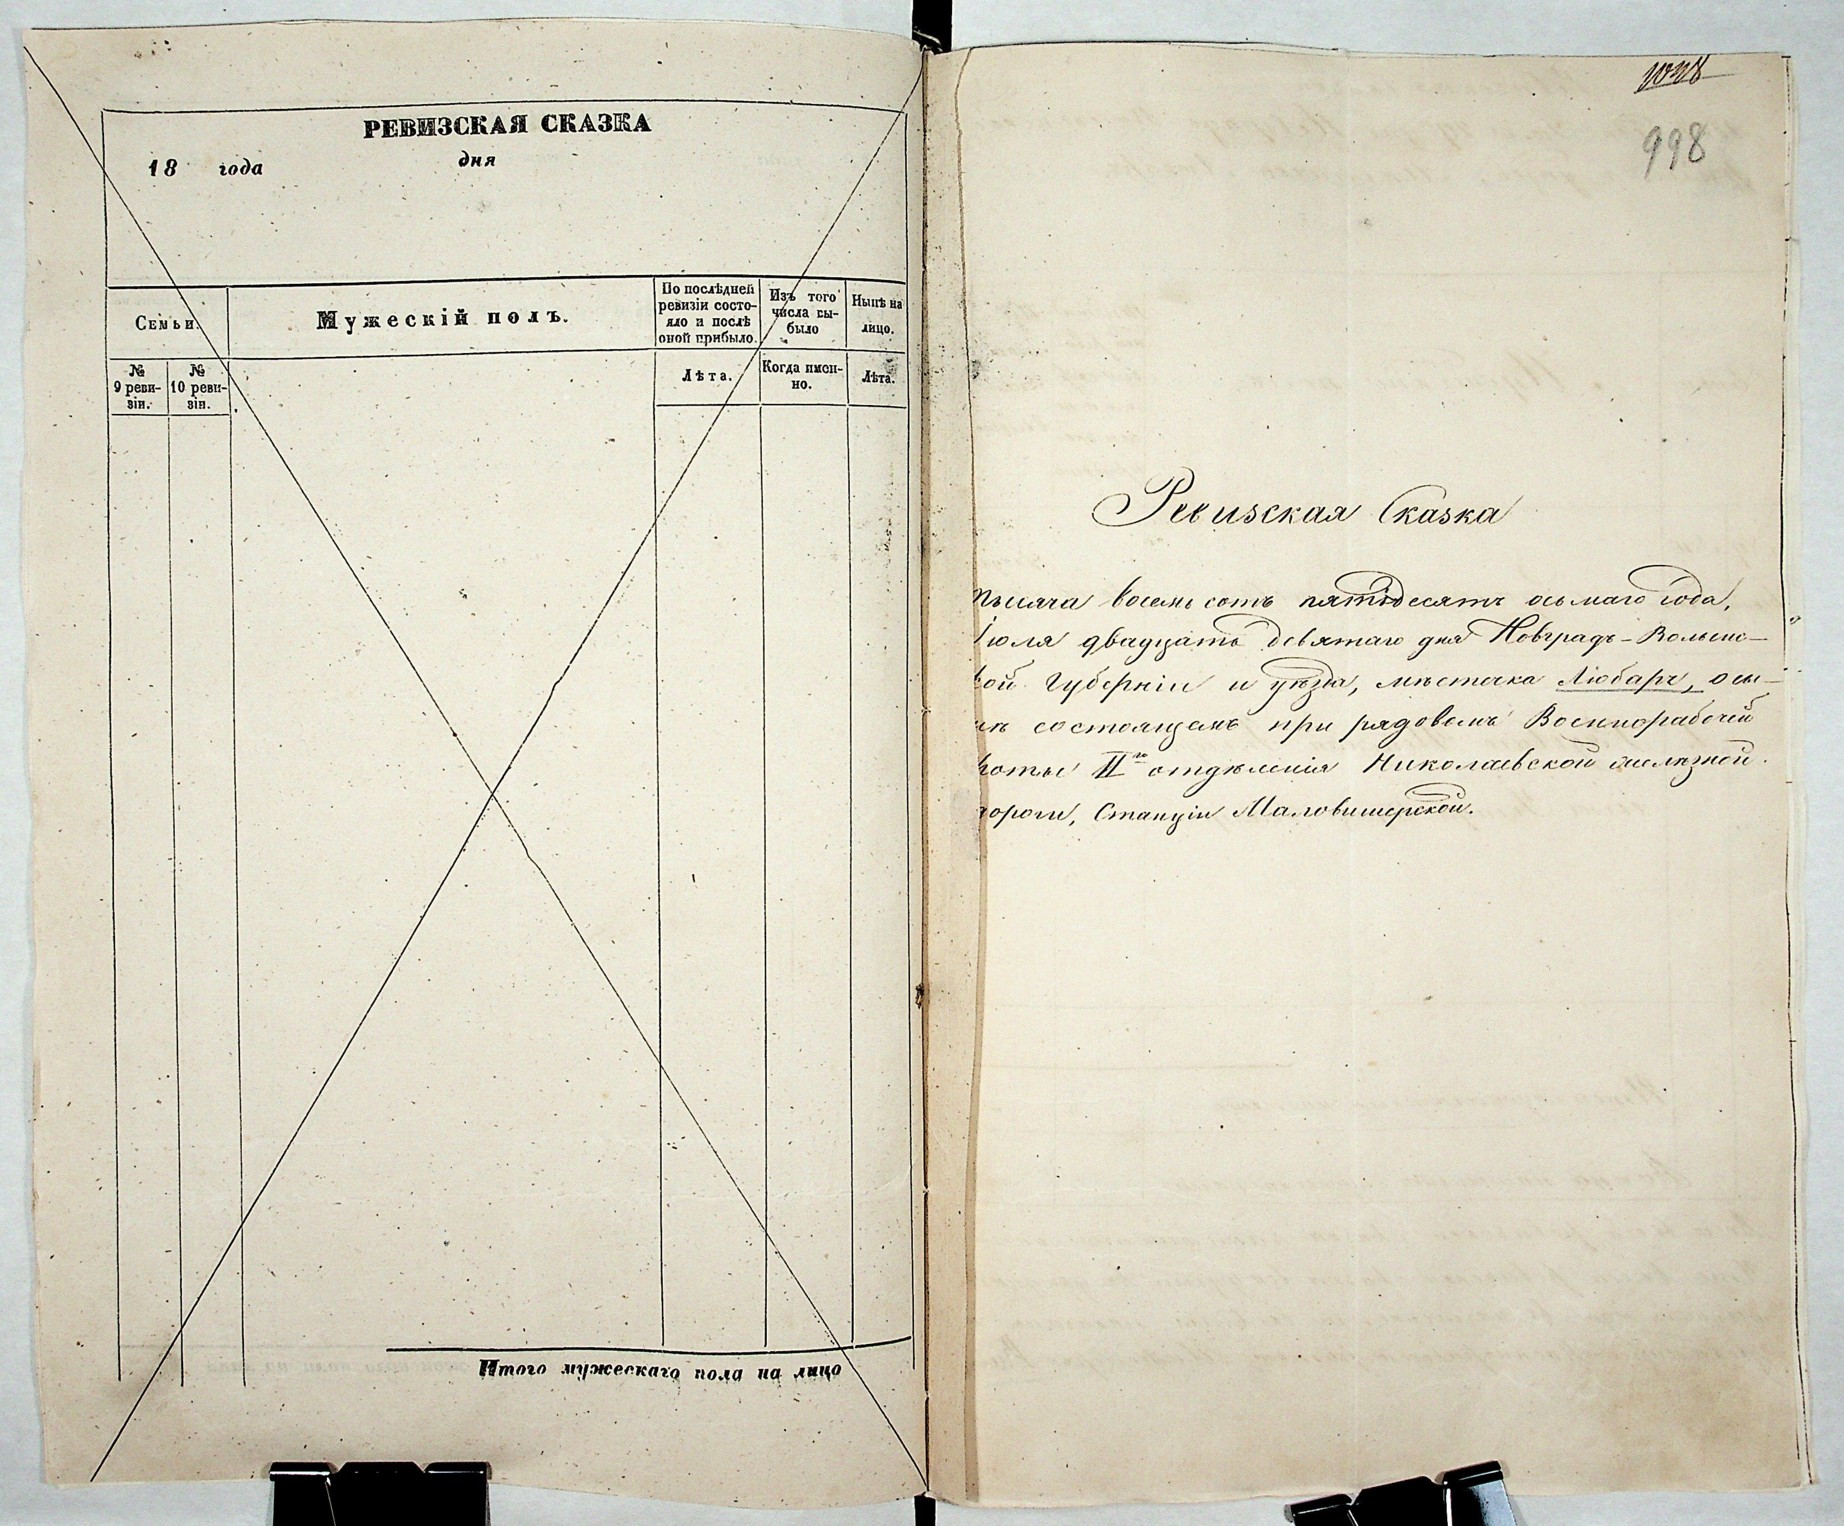 РЕВИЗСКАЯ СКАЗКА
18 года дня
Семьи.
Мужескій полъ.
По послѣдней
ревизіи состо-
яло и послѣ
оной прибыло.
Изъ того
числа вы-
было
Нынѣ на
лицо.
№
9 реви-
зіи.
№
10 реви-
зіи.
Лѣта.
Когда имен-
но.
Лѣта.
Итого мужескаго пола на лицо
998
Ревизская Сказка
тысяча восемь сотъ пятидесятъ осьмаго года,
Іюля двадцать девятаго дня Новградъ-Волынс-
кой Губерніи и уѣзда, мѣстечка Любаръ, о сы-
нѣ состоящемъ при рядовомъ Военнорабочей
роты II го отдѣленія Николаевской желѣзной
дороги, Станціи Маловишерской.